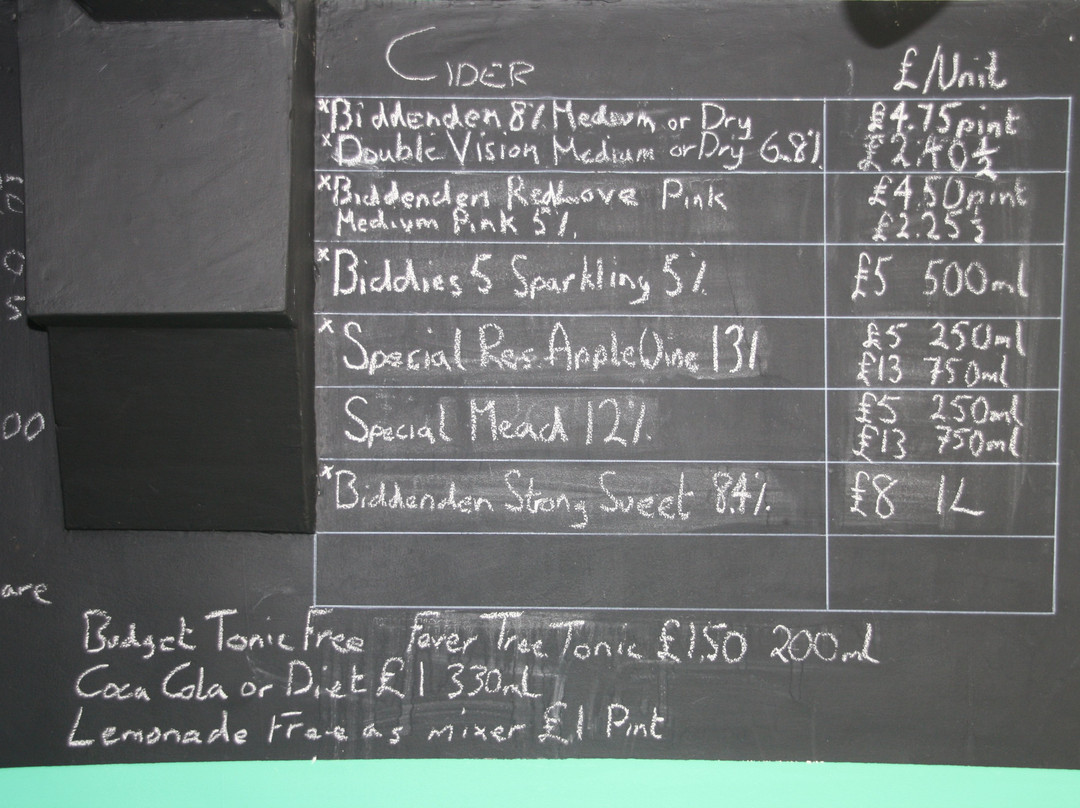 CIDER £/Unit
*Biddenden 8% Medium or Dry £4.75 pint
*Double Vision Medium or Dry 6.8% £2.40 ½
*Biddenden RedLove Pink £4.50 pint
Medium Pink 5% £2.25 ½
*Biddies 5 Sparkling 5% £5 500ml
*Special Res. AppleWine 13% £5 250ml
£13 750ml
Special Mead 12% £5 250ml
£13 750ml
*Biddenden Strong Sweet 8.4% £8 1L
00
are
Budget Tonic Free Fever Tree Tonic £1.50 200ml
Coca Cola or Diet £1 330ml
Lemonade Free as mixer £1 Pint